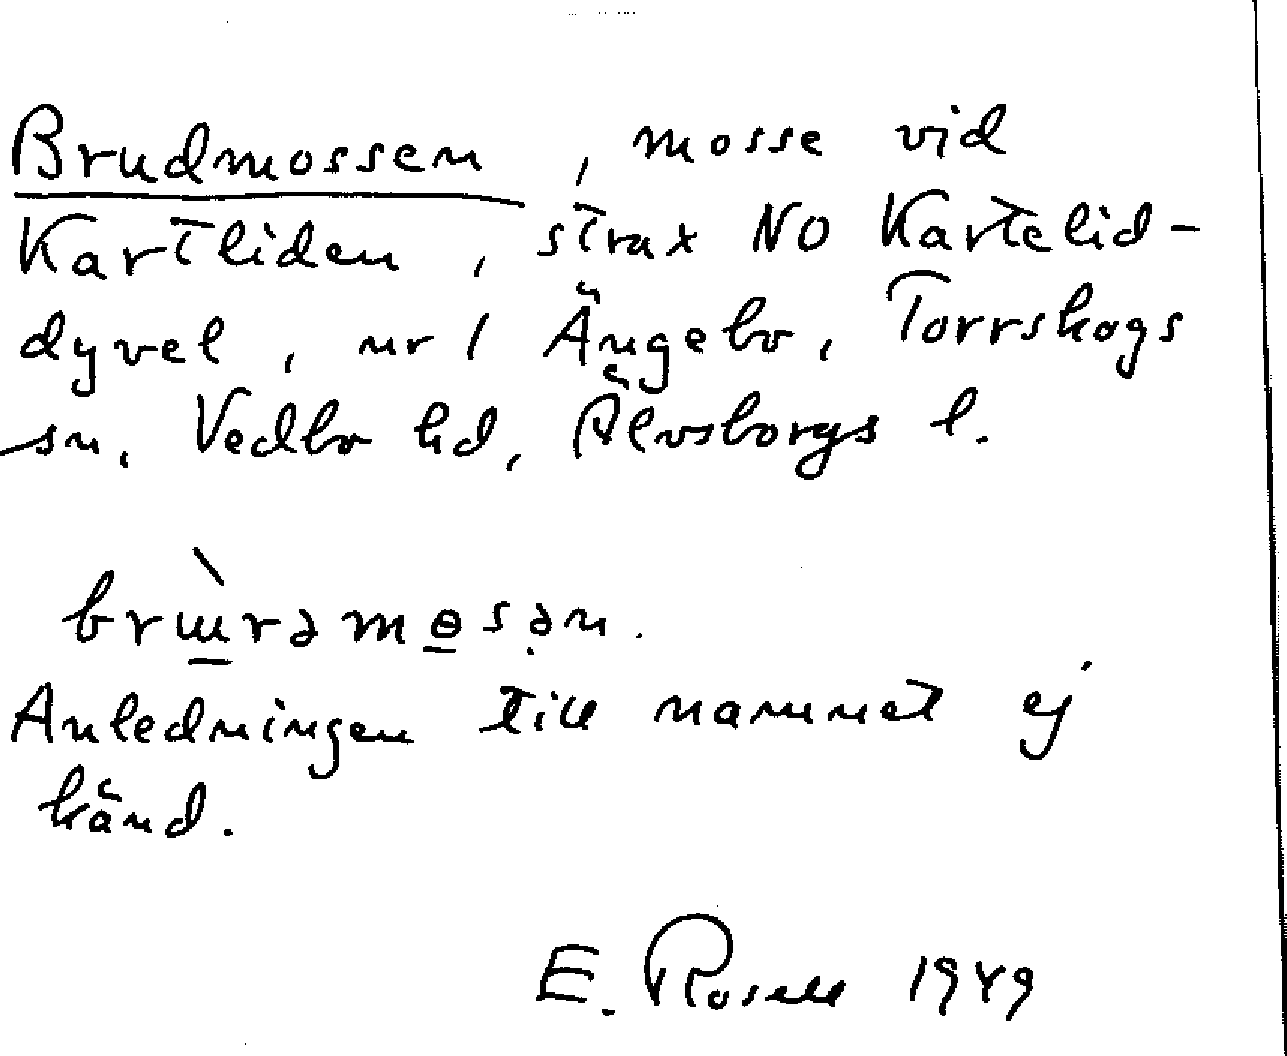 Brudmossen, mosse vid
Kartliden, strax NO Kartelid-
dyvel, nr 1 Ängebo, Torrskogs
sn, Vedbo hd, Älvsborgs l.
brɯ̀rəmɵsən.
Anledningen till namnet ej
känd.
E. Rosell 1949